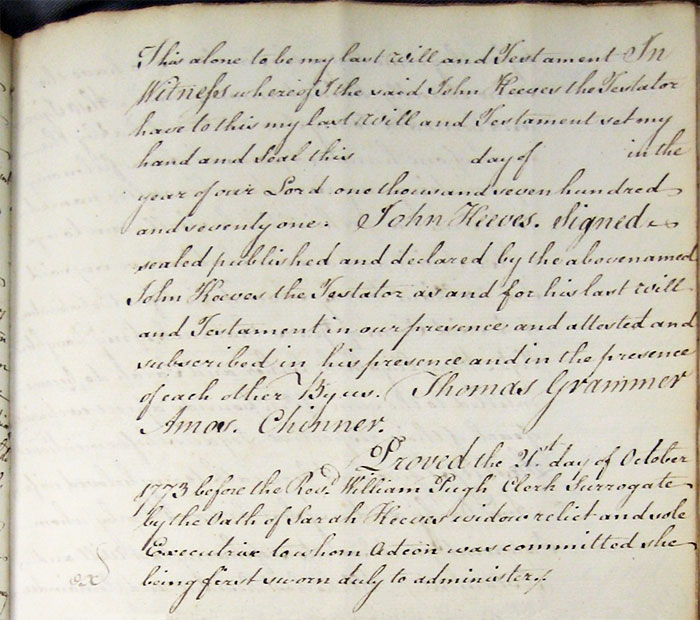 This alone to be my last Will and Testament In
Witness whereof I the said John Reeves the Testator
have to this my last Will and Testament set my
hand and Seal this day of in the
year of our Lord one thousand seven hundred
and seventy one. John Reeves. Signed
sealed published and declared by the abovenamed
John Reeves the Testator as and for his last Will
and Testament in our presence and attested and
subscribed in his presence and in the presence
of each other By us. Thomas Grammer
Amos. Chinner.
Proved the 21st day of October
1773 before the Revd. William Pugh Clerk Surrogate
by the Oath of Sarah Reeves widow relict and sole
Executrix to whom Adcon was committed she
ex being first sworn duly to administer.